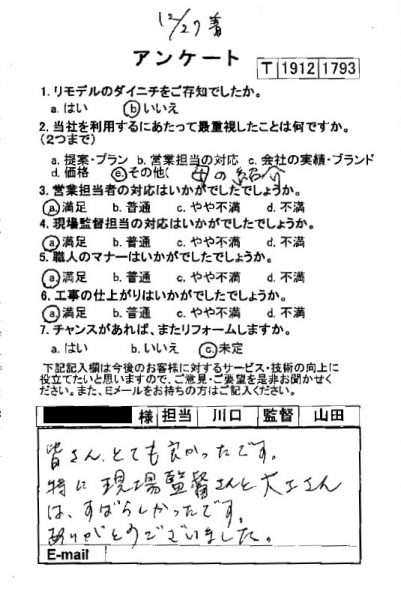 12/27着
アンケート
T 1912 1793
1. リモデルのダイニチをご存知でしたか。
a. はい ⓑいいえ
2. 当社を利用するにあたって最重視したことは何ですか。
(2つまで)
a. 提案・プラン b. 営業担当の対応 c. 会社の実績・ブランド
d. 価格 ⓔその他( 母の紹介
3. 営業担当者の対応はいかがでしたでしょうか。
ⓐ満足 b. 普通 c. やや不満 d. 不満
4. 現場監督担当の対応はいかがでしたでしょうか。
ⓐ満足 b. 普通 c. やや不満 d. 不満
5. 職人のマナーはいかがでしたでしょうか。
ⓐ満足 b. 普通 c. やや不満 d. 不満
6. 工事の仕上がりはいかがでしたでしょうか。
ⓐ満足 b. 普通 c. やや不満 d. 不満
7. チャンスがあれば、またリフォームしますか。
a. はい b. いいえ ⓒ未定
下記記入欄は今後のお客様に対するサービス・技術の向上に
役立てたいと思いますので、ご意見・ご要望を是非お聞かせく
ださい。また、Eメールをお持ちの方はご記入ください。
様 担当 川口 監督 山田
皆さん、とても良かったです。
特に現場監督さんと大工さん
は、すばらしかったです。
ありがとうございました。
E-mail